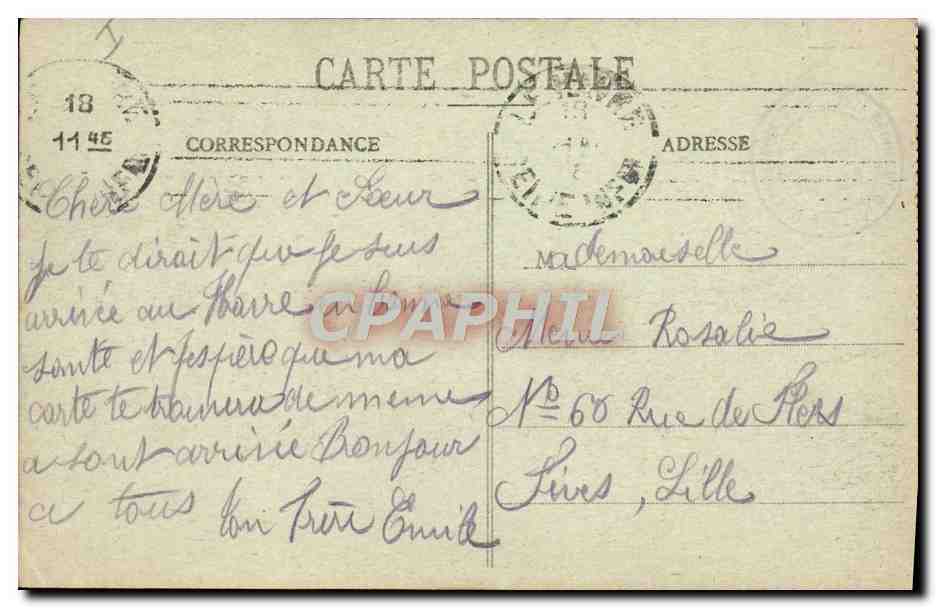 CARTE POSTALE
18
11 45
CORRESPONDANCE
Chère Mère et Sœur
Je te dirait que je suis
arrivée au Havre
santé et j'espère que ma
carte te trouvera de meme
a sont arrivée Bonjour
a tous ton Frère Emile
ADRESSE
Mademoiselle
Rosalie
No 60 Rue de Flers
Fives, Lille
CPAPHIL